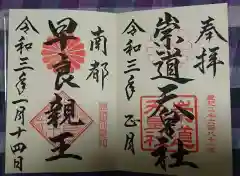 奉拝
崇道天皇社
令和三年 正月
南都
早良親王
令和三年一月十四日